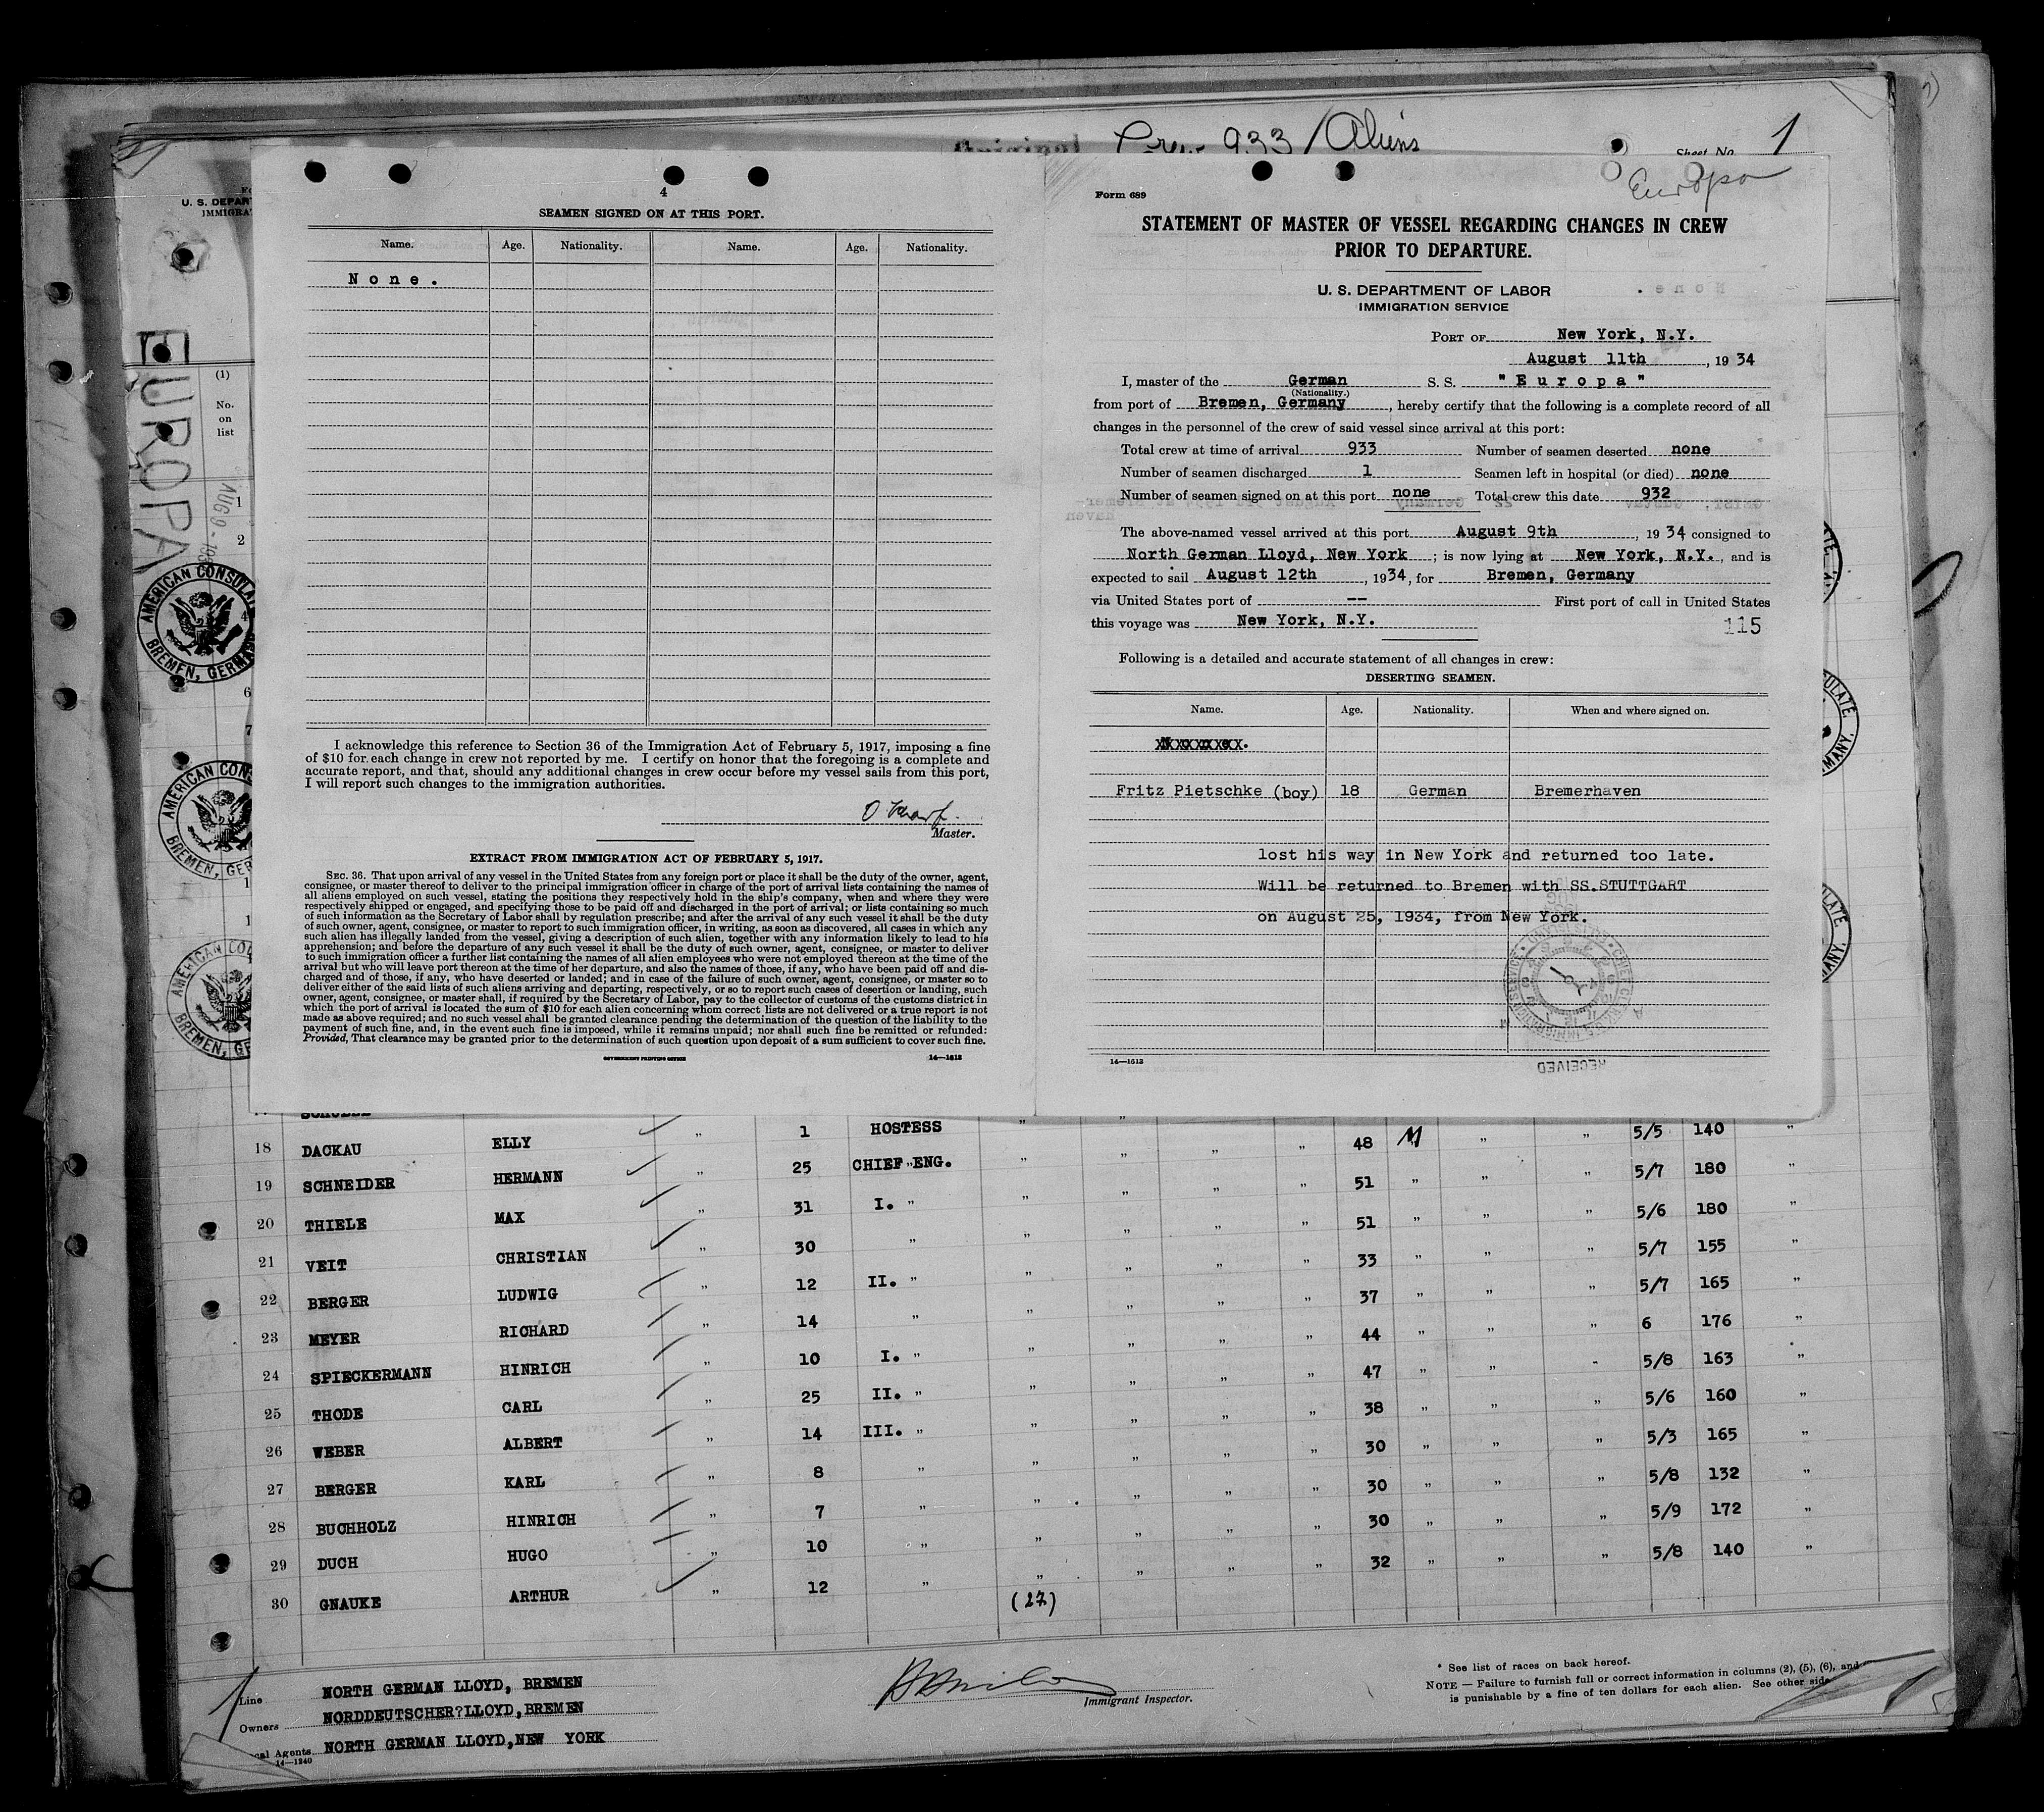 Crew 933 / Aliens
Sheet No. 1
U. S. DEPAR
IMMIGRA
EUROPA
AUG 9 - 193
(1)
No.
on
list
1
2
4
6
7
AMERICAN CONSULAT
BREMEN, GERMAN
AMERICAN CON
BREMEN, GER
AMERICAN CO
BREMEN, GE
4
SEAMEN SIGNED ON AT THIS PORT.
Name. Age. Nationality. Name. Age. Nationality.
None.
I acknowledge this reference to Section 36 of the Immigration Act of February 5, 1917, imposing a fine
of $10 for each change in crew not reported by me. I certify on honor that the foregoing is a complete and
accurate report, and that, should any additional changes in crew occur before my vessel sails from this port,
I will report such changes to the immigration authorities.
Master.
EXTRACT FROM IMMIGRATION ACT OF FEBRUARY 5, 1917.
SEC. 36. That upon arrival of any vessel in the United States from any foreign port or place it shall be the duty of the owner, agent,
consignee, or master thereof to deliver to the principal immigration officer in charge of the port of arrival lists containing the names of
all aliens employed on such vessel, stating the positions they respectively hold in the ship's company, when and where they were
respectively shipped or engaged, and specifying those to be paid off and discharged in the port of arrival; or lists containing so much
of such information as the Secretary of Labor shall by regulation prescribe; and after the arrival of any such vessel it shall be the duty
of such owner, agent, consignee, or master to report to such immigration officer, in writing, as soon as discovered, all cases in which any
such alien has illegally landed from the vessel, giving a description of such alien, together with any information likely to lead to his
apprehension; and before the departure of any such vessel it shall be the duty of such owner, agent, consignee, or master to deliver
to such immigration officer a further list containing the names of all alien employees who were not employed thereon at the time of the
arrival but who will leave port thereon at the time of her departure, and also the names of those, if any, who have been paid off and dis-
charged and of those, if any, who have deserted or landed; and in case of the failure of such owner, agent, consignee, or master so to
deliver either of the said lists of such aliens arriving and departing, respectively, or so to report such cases of desertion or landing, such
owner, agent, consignee, or master shall, if required by the Secretary of Labor, pay to the collector of customs of the customs district in
which the port of arrival is located the sum of $10 for each alien concerning whom correct lists are not delivered or a true report is not
made as above required; and no such vessel shall be granted clearance pending the determination of the question of the liability to the
payment of such fine, and, in the event such fine is imposed, while it remains unpaid; nor shall such fine be remitted or refunded:
Provided, That clearance may be granted prior to the determination of such question upon deposit of a sum sufficient to cover such fine.
GOVERNMENT PRINTING OFFICE 14—1613
Europa
Form 689
STATEMENT OF MASTER OF VESSEL REGARDING CHANGES IN CREW
PRIOR TO DEPARTURE.
U. S. DEPARTMENT OF LABOR
IMMIGRATION SERVICE
PORT OF New York, N.Y.
August 11th, 19 34
I, master of the German S. S. "Europa"
(Nationality.)
from port of Bremen, Germany, hereby certify that the following is a complete record of all
changes in the personnel of the crew of said vessel since arrival at this port:
Total crew at time of arrival 933 Number of seamen deserted none
Number of seamen discharged 1 Seamen left in hospital (or died) none
Number of seamen signed on at this port none Total crew this date 932
The above-named vessel arrived at this port August 9th, 19 34 consigned to
North German Lloyd, New York; is now lying at New York, N.Y., and is
expected to sail August 12th, 19 34, for Bremen, Germany
via United States port of -- First port of call in United States
this voyage was New York, N.Y.
115
Following is a detailed and accurate statement of all changes in crew:
DESERTING SEAMEN.
Name. Age. Nationality. When and where signed on.
Fritz Pietschke (boy) 18 German Bremerhaven
lost his way in New York and returned too late.
Will be returned to Bremen with SS.STUTTGART
on August 25, 1934, from New York.
RECEIVED
14—1613
18 DACKAU ELLY " 1 HOSTESS " " " " 48 M " " 5/5 140 "
19 SCHNEIDER HERMANN " 25 CHIEF "ENG. " " " " 51 " " " 5/7 180 "
20 THIELE MAX " 31 I. " " " " " 51 " " " 5/6 180 "
21 VEIT CHRISTIAN " 30 " " " " " 33 " " " 5/7 155 "
22 BERGER LUDWIG " 12 II. " " " " " 37 " " " 5/7 165 "
23 MEYER RICHARD " 14 " " " " " 44 " " " 6 176 "
24 SPIECKERMANN HINRICH " 10 I. " " " " " 47 " " - 5/8 163 "
25 THODE CARL " 25 II. " " " " " 38 " " " 5/6 160 "
26 WEBER ALBERT " 14 III. " " " " " 30 " " " 5/3 165 "
27 BERGER KARL " 8 " " " " " 30 " " " 5/8 132 "
28 BUCHHOLZ HINRICH " 7 " " " " " 30 " " " 5/9 172 "
29 DUCH HUGO " 10 " " " " " 32 " " " 5/8 140 "
30 GNAUKE ARTHUR " 12 "
(27)
Line NORTH GERMAN LLOYD, BREMEN
Owners NORDDEUTSCHER?LLOYD,BREMEN
cal Agents NORTH GERMAN LLOYD,NEW YORK
14—1240
Immigrant Inspector.
* See list of races on back hereof.
NOTE — Failure to furnish full or correct information in columns (2), (5), (6), and
is punishable by a fine of ten dollars for each alien. See other side